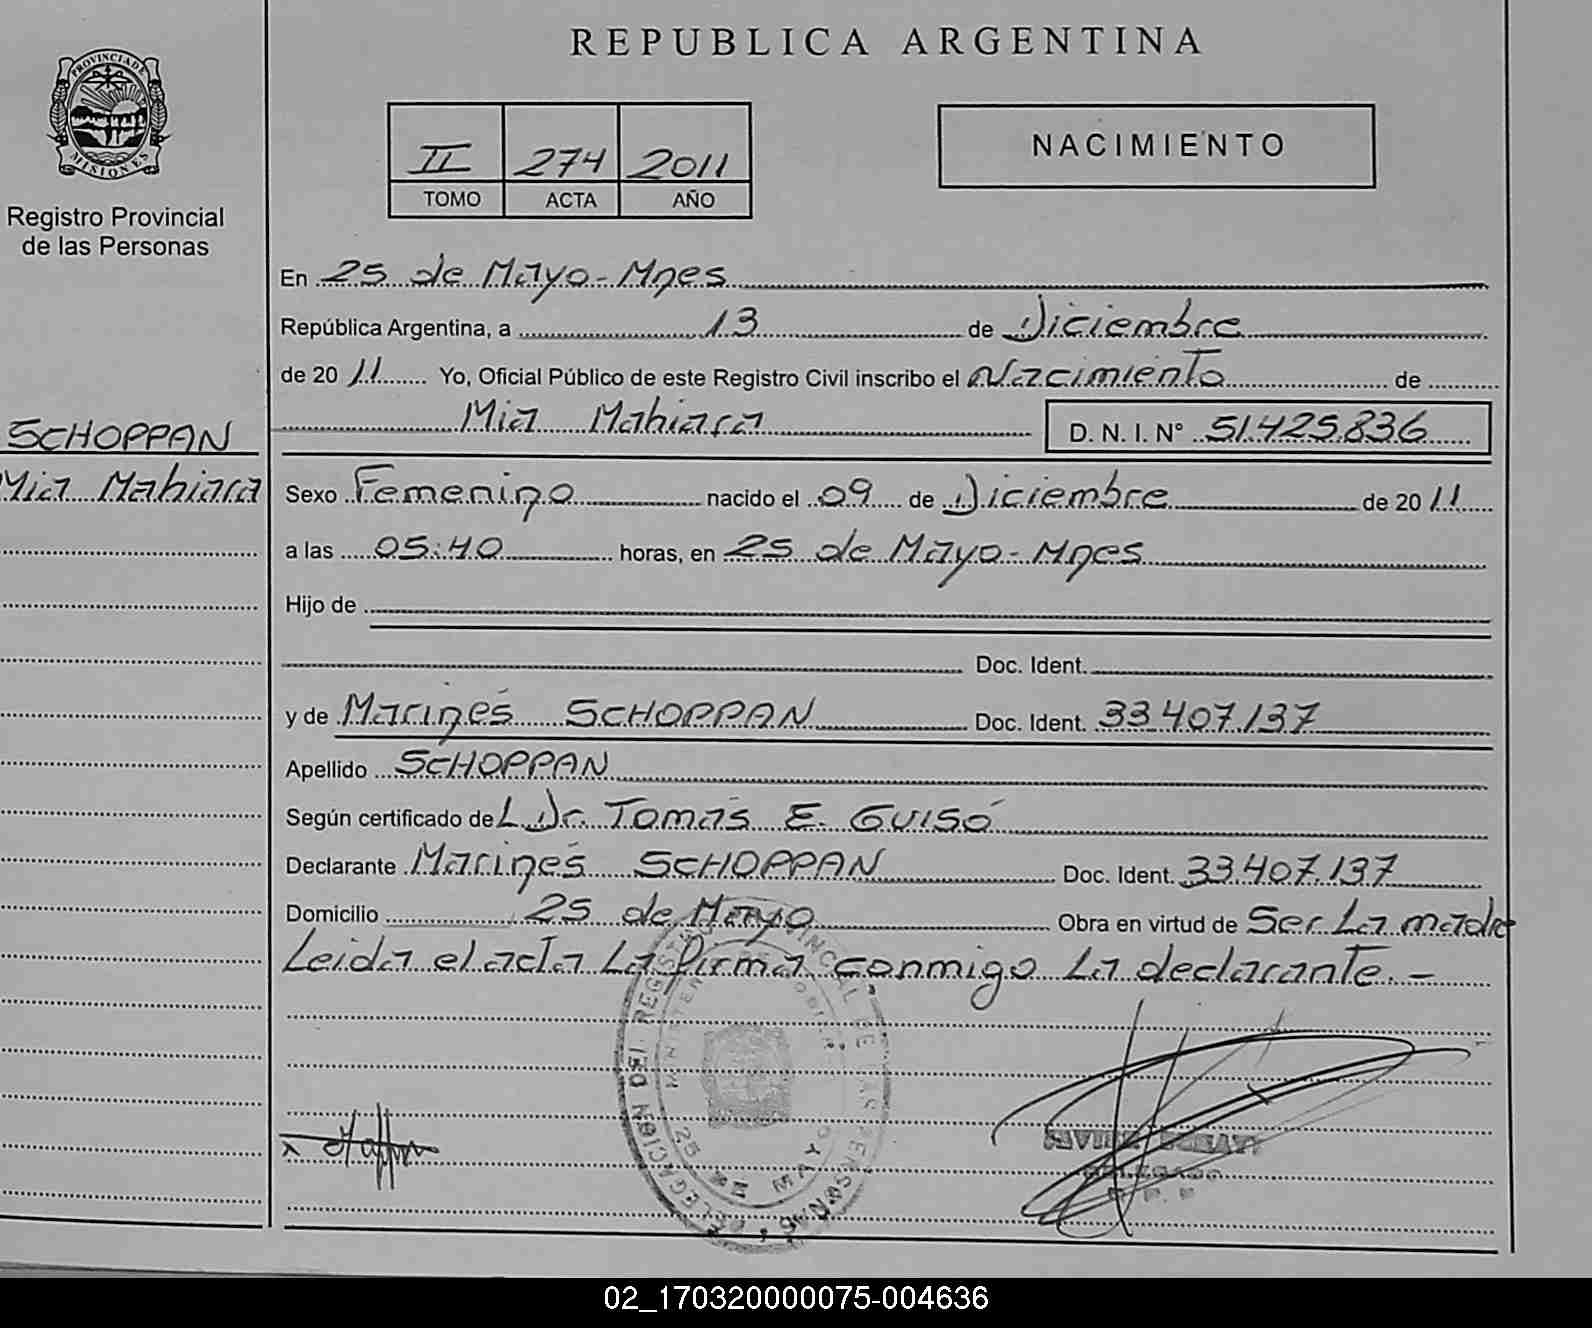 PROVINCIA DE
MISIONES
Registro Provincial
de las Personas
SCHOPPAN
Mia Mahiara
REPUBLICA ARGENTINA
II 274 2011
TOMO ACTA AÑO
NACIMIENTO
En 25 de Mayo - Mnes
República Argentina, a 13 de Diciembre
de 2011 Yo, Oficial Público de este Registro Civil inscribo el Nacimiento de
Mia Mahiara D. N. I. N° 51.425.836
Sexo Femenino nacido el 09 de Diciembre de 2011
a las 05:40 horas, en 25 de Mayo - Mnes
Hijo de
Doc. Ident.
y de Marinés SCHOPPAN Doc. Ident. 33.407.137
Apellido SCHOPPAN
Según certificado del Dr. Tomás E. GUISÓ
Declarante Marinés SCHOPPAN Doc. Ident. 33.407.137
Domicilio 25 de Mayo Obra en virtud de Ser La madre
Leida el acta La firma conmigo La declarante.-
DELEGACION DEL REGISTRO PROVINCIAL DE LAS PERSONAS
25 DE MAYO
x
DELEGADO
02_170320000075-004636